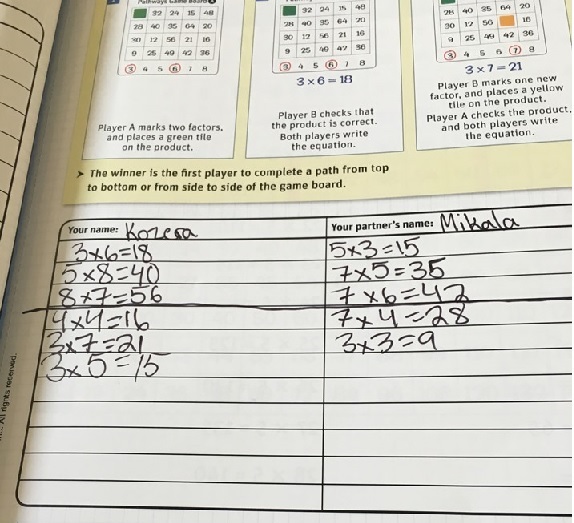 32 24 15 48
28 40 35 64 20
30 12 56 21 16
9 25 49 42 36
3 4 5 6 7 8
Player A marks two factors,
and places a green tile
on the product.
32 24 15 48
28 40 35 64 20
30 12 56 21 16
9 25 49 42 36
3 4 5 6 7 8
3 × 6 = 18
Player B checks that
the product is correct.
Both players write
the equation.
28 40 35 64 20
30 12 56 16
9 25 49 42 36
3 4 5 6 7 8
3 × 7 = 21
Player B marks one new
factor, and places a yellow
tile on the product.
Player A checks the product,
and both players write
the equation.
➤ The winner is the first player to complete a path from top
to bottom or from side to side of the game board.
Your name: Koresa
3×6=18
5×8=40
8×7=56
4×4=16
3×7=21
3×5=15
Your partner's name: Mikala
5×3=15
7×5=35
7×6=42
7×4=28
3×3=9
All rights reserved.